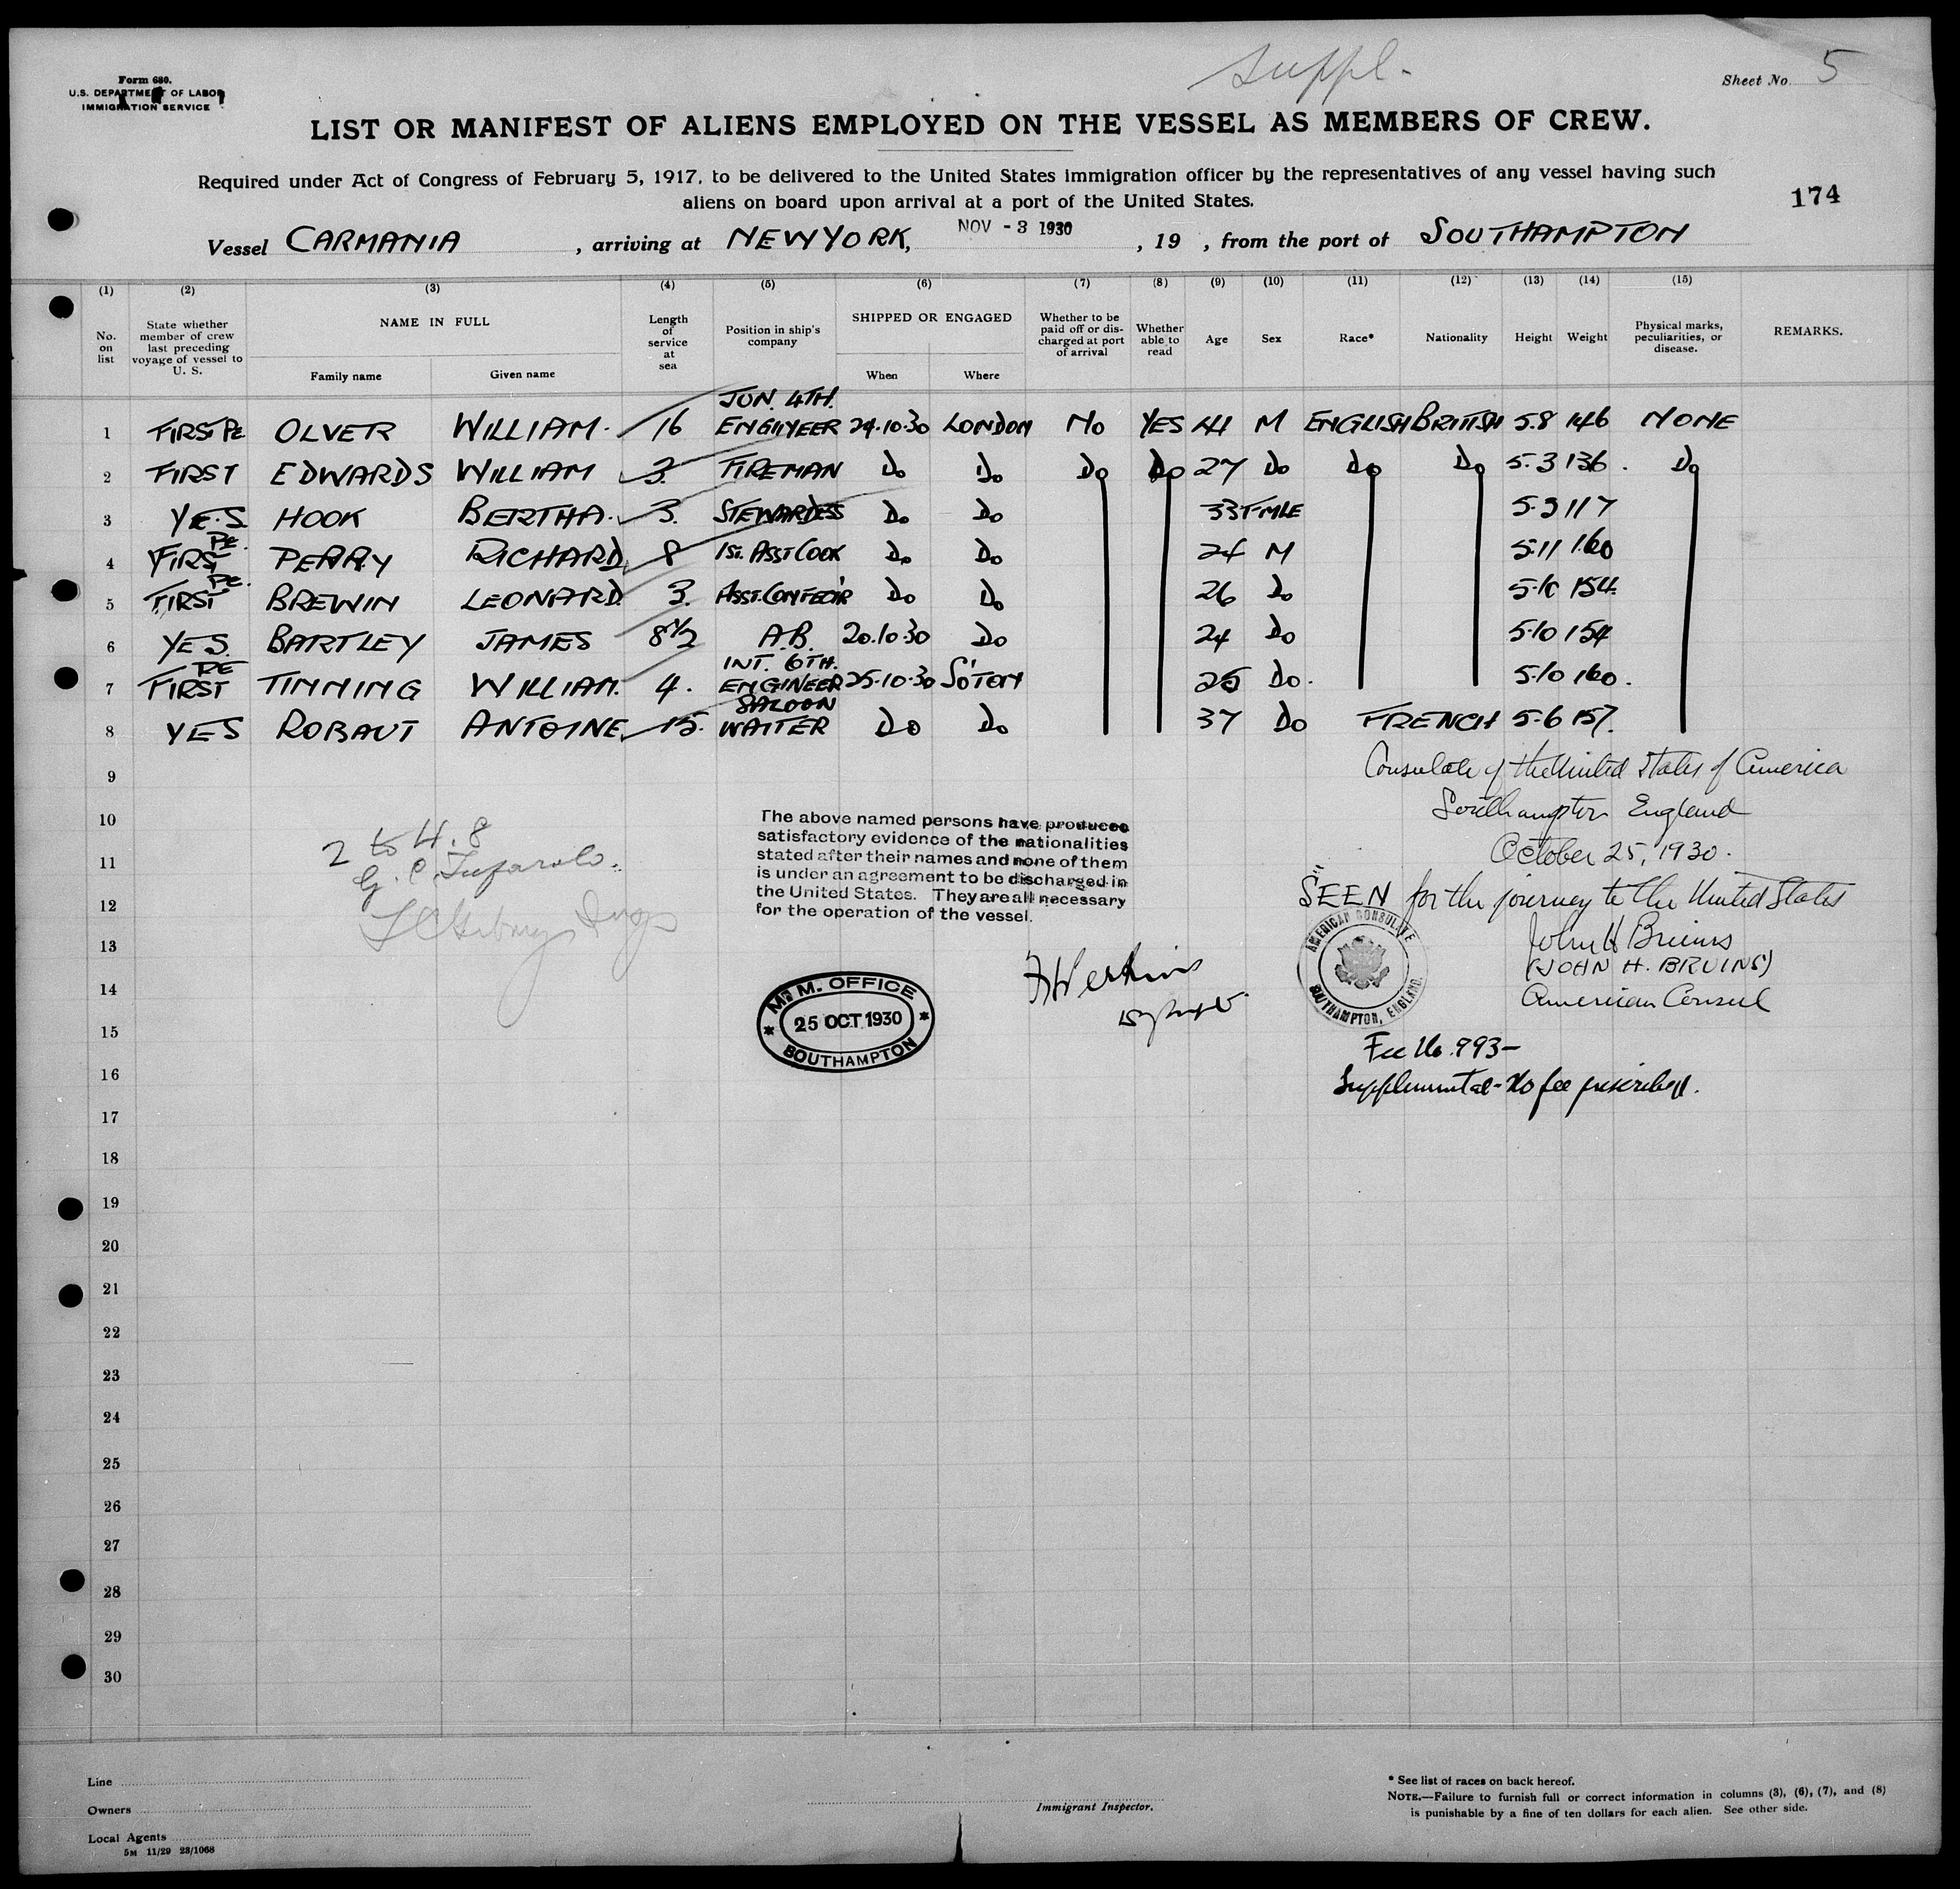 Suppl.
Form 680.
U.S. DEPARTMENT OF LABOR
IMMIGRATION SERVICE
Sheet No. 5
LIST OR MANIFEST OF ALIENS EMPLOYED ON THE VESSEL AS MEMBERS OF CREW.
Required under Act of Congress of February 5, 1917, to be delivered to the United States immigration officer by the representatives of any vessel having such
aliens on board upon arrival at a port of the United States.
174
Vessel CARMANIA , arriving at NEW YORK, NOV - 3 1930 , 19 , from the port of SOUTHAMPTON
(1) (2) (3) (4) (5) (6) (7) (8) (9) (10) (11) (12) (13) (14) (15)
No. on list State whether member of crew last preceding voyage of vessel to U. S. NAME IN FULL Family name Given name Length of service at sea Position in ship's company SHIPPED OR ENGAGED When Where Whether to be paid off or discharged at port of arrival Whether able to read Age Sex Race* Nationality Height Weight Physical marks, peculiarities, or disease. REMARKS.
1 FIRST PE OLVER WILLIAM. 16 JUN. 4TH. ENGINEER 24.10.30 LONDON NO YES 44 M ENGLISH BRITISH 5.8 146 NONE
2 FIRST EDWARDS WILLIAM 3. FIREMAN Do Do Do Do 27 Do Do Do 5.3 136. Do
3 YES HOOK BERTHA. 3. STEWARDESS Do Do 33 FMLE 5.3 117
4 FIRST PE. PERRY RICHARD 8 1ST. ASST COOK Do Do 24 M 5.11 160
5 FIRST PE. BREWIN LEONARD. 3. ASST. CONFECR Do Do 26 Do 5.10 154.
6 YES. BARTLEY JAMES 8 1/2 A.B. 20.10.30 Do 24 Do 5.10 154
7 FIRST PE TINNING WILLIAM. 4. INT. 6TH. ENGINEER 25.10.30 SO'TON 25 Do. 5.10 160.
8 YES ROBAUT ANTOINE. 15. SALOON WAITER Do Do 37 Do FRENCH 5.6 157.
9
Consulate of the United States of America
10
Southampton England
11
October 25, 1930.
12
"SEEN" for the journey to the United States
13
John H Bruins
(JOHN H. BRUINS)
14
American Consul
15
Fee No. 993-
16
Supplemental - No fee prescribed.
2 to 4. 8
The above named persons have produced
satisfactory evidence of the nationalities
stated after their names and none of them
is under an agreement to be discharged in
the United States. They are all necessary
for the operation of the vessel.
M. M. OFFICE
* 25 OCT 1930 *
SOUTHAMPTON
AMERICAN CONSULATE
SOUTHAMPTON, ENGLAND.
17
18
19
20
21
22
23
24
25
26
27
28
29
30
Line
Owners
Local Agents
5M 11/29 23/1068
Immigrant Inspector.
* See list of races on back hereof.
NOTE.—Failure to furnish full or correct information in columns (3), (6), (7), and (8)
is punishable by a fine of ten dollars for each alien. See other side.